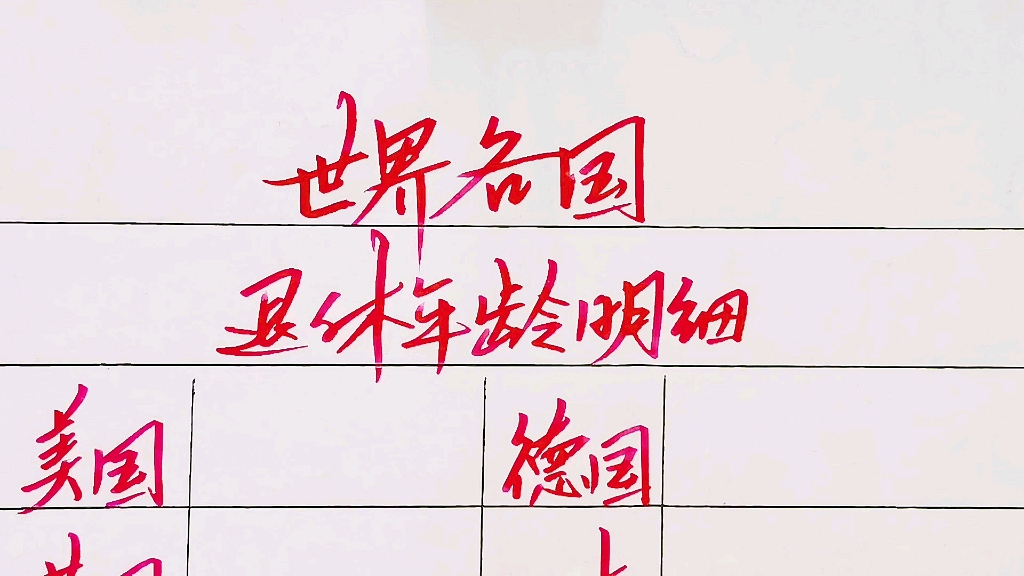 世界各国
退休年龄明细
美国 德国